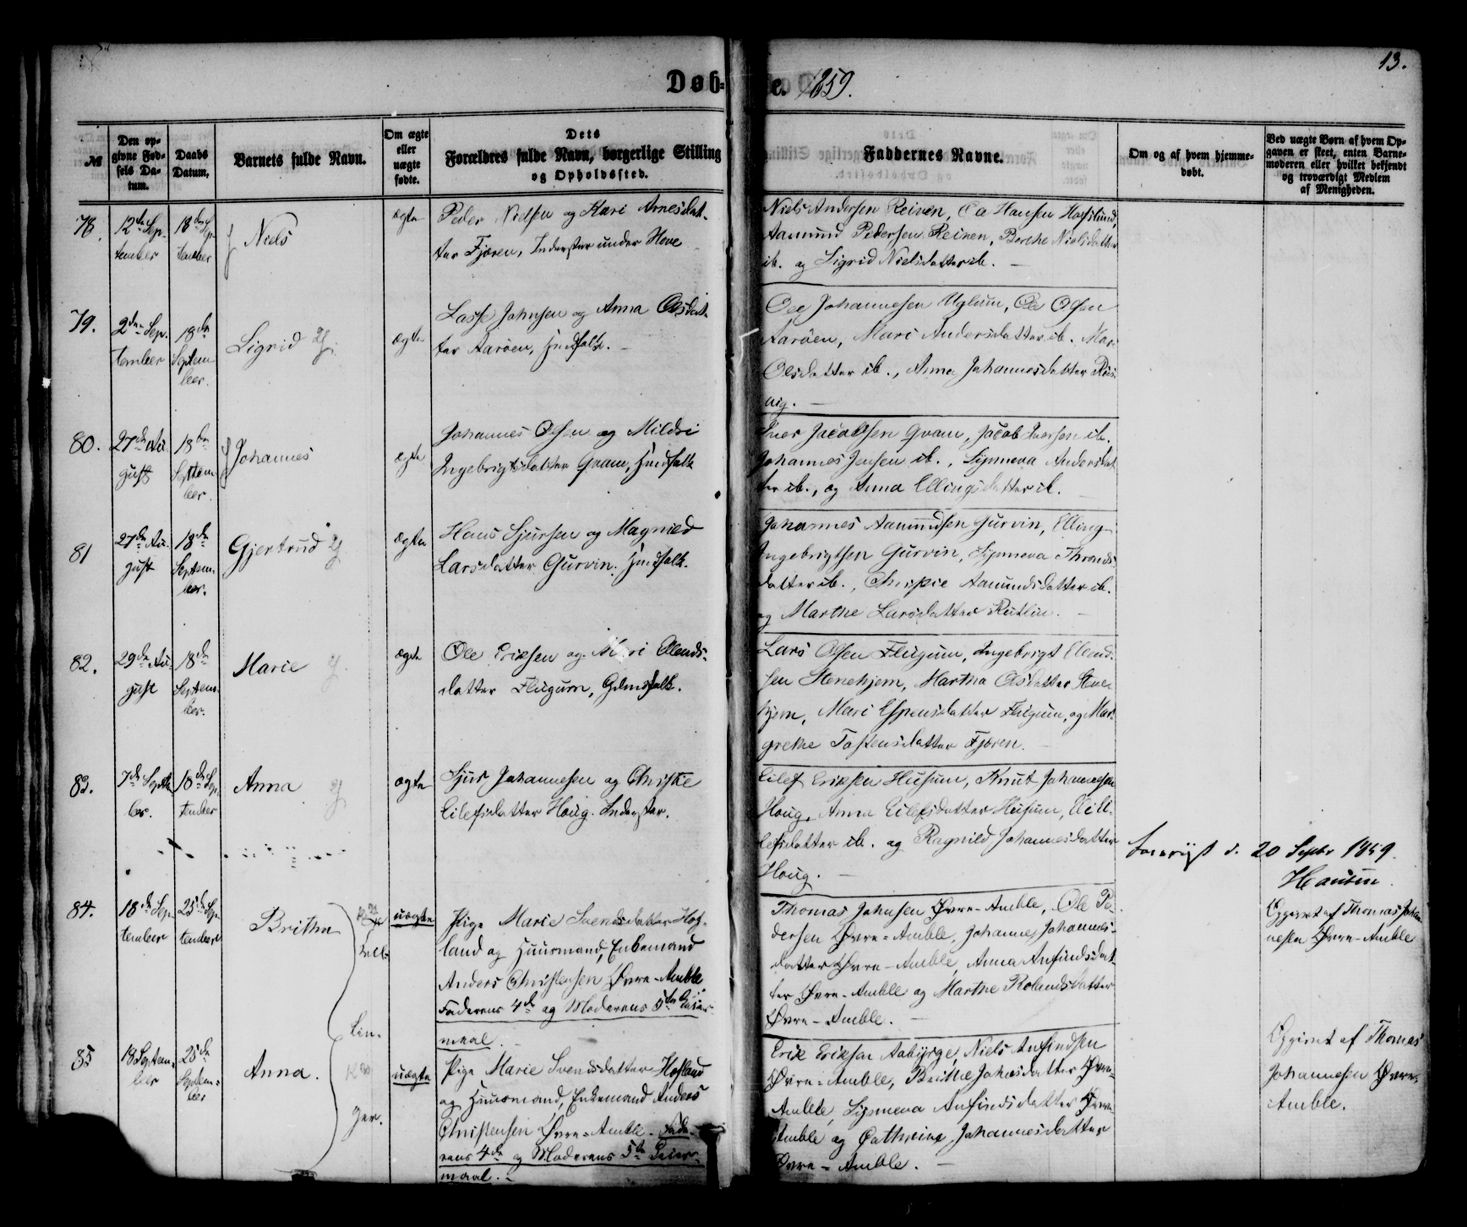 Døb-
e. 1859.
13.
№
Den op-
givne Fød-
sels Da-
tum.
Daabs
Datum,
Barnets fulde Navn.
Om ægte
eller
uægte
fødte.
Dets
Forældres fulde Navn, borgerlige Stilling
og Opholdssted.
Faddernes Navne.
Om og af hvem hjemme-
døbt.
Ved uægte Børn af hvem Op-
gaven er skeet, enten Barne-
moderen eller hvilket bekjendt
og troværdigt Medlem
af Menigheden.
78.
12te Sep-
tember
18de Sep-
tember
Niels
ægte
Peder Nielsen og Kari Arnesdat-
ter Fjøren, Inderster under Hove
Niels Andersen Reinen, Ole Hansen
Aamund Pedersen Reinen, Berthe Nielsdatter
ib. og Sigrid Nielsdatter ib.
79.
2den Sep-
tember
18de
Septem-
ber.
Sigrid
ægte
Lasse Johnsen og Anna Olsdat-
ter Aarøen, Huusfolk.
Ole Johannesen Uglum, Ole Olsen
Aarøen, Mari Andersdatter ib. Mar-
Olsdatter ib., Anna Johannesdatter
vig.
80.
27de Au-
gust
18de
Septem-
ber.
Johannes
ægte
Johannes Olsen og Mildri
Ingebrigtsdatter Qvam, Huusfolk
Iver Jacobsen Qvam, Jacob Iversen ib.
Johannes Jensen ib., Synneva Andersdat-
ter ib., og Anna Ellingsdatter ib.
81
27de Au-
gust
18de
Septem-
ber.
Gjertrud
ægte
Hans Sjursen og Magnild
Larsdatter Gurvin. Huusfolk.
Johannes Aamundsen Gurvin, Elling
Ingebrigtsen Gurvin, Synneva Thronds-
datter ib., Christie Aamundsdatter ib.
og Marthe Larsdatter Rutlin.
82.
29de Au-
gust
18de
Septem-
ber.
Marie
ægte
Ole Eriksen og Mari Ellends-
datter Flugum, Gdmsfolk.
Lars Olsen Flugum, Ingebrigt Ellend-
sen Stenehjem, Martha Olsdatter Stene-
hjem, Mari Espensdatter Flugum, og Mar-
grethe Tostensdatter Fjøren.
83.
7de Septem-
ber.
18de Sep-
tember
Anna
ægte
Sjur Johannesen og Christie
Eilefsdatter Houg. Inderster.
Eilef Eriksen Husum, Knut Johannesen
Houg, Anna Eilefsdatter Husum, Eili
Eilefsdatter ib. og Ragnild Johannesdatter
Houg.
d. 20 Septbr 1859.
Hansen
84.
18de Sep-
tember
25de Sep-
tember
Britha
uægte
Pige Marie Svendsdatter Hof-
land og Huusmand, Enkemand
Anders Christensen Øvre-Amble
Faderens 4de og Moderens 5te Leier-
maal.
Thomas Johnsen Øvre-Amble, Ole Pe-
dersen Øvre-Amble, Johanne Johannes-
datter Øvre-Amble, Anna Anfindsdat-
ter Øvre-Amble og Marthe Rolandsdatter
Øvre-Amble.
Opgivet af Thomas Johan-
nesen Øvre-Amble
85
18 Septem-
ber
25de
Septem-
ber
Anna.
Tvil-
lin-
ger.
uægte
Pige Marie Svendsdatter Hofland
og Huusmand, Enkemand Anders
Christensen Øvre-Amble. Fade-
rens 4de og Moderens 5te Leier-
maal.
Erik Eriksen Aabjørge, Niels Anfindsen
Øvre-Amble, Brithe Johansdatter Øvre-
Amble, Synneva Anfindsdatter Øvre-
Amble og Cathrine Johannesdatter
Øvre-Amble.
Opgivet af Thomas
Johannesen Øvre-
Amble.